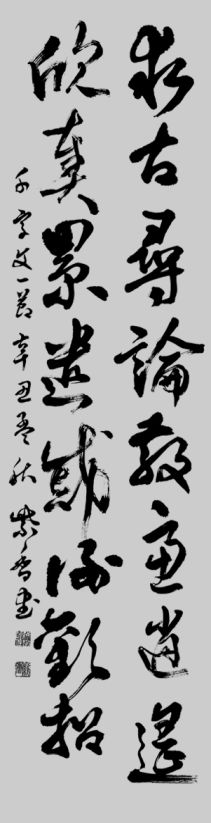 求古尋論散慮逍遙
欣奏累遣慼謝歡招
千字文一節 辛丑孟秋 紫香